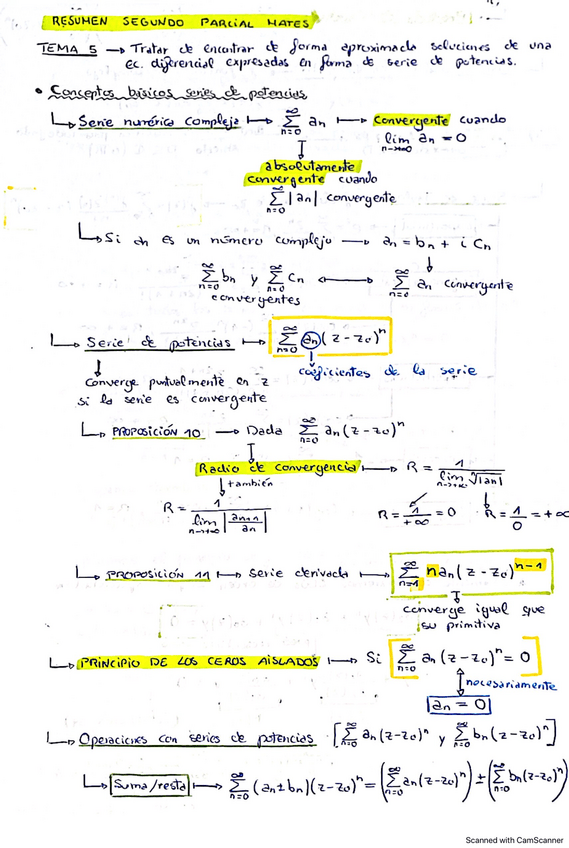 RESUMEN SEGUNDO PARCIAL MATES
TEMA 5 → Tratar de encontrar de forma aproximada soluciones de una
ec. diferencial expresadas en forma de serie de potencias.
• Conceptos básicos series de potencias
↳ Serie numérica compleja ↦ ∑_{n=0}^{∞} an ↦ Convergente cuando
lim_{n→+∞} an = 0
absolutamente
convergente cuando
∑_{n=0}^{∞} |an| convergente
↳ Si an es un número complejo → an = bn + i Cn
∑_{n=0}^{∞} bn y ∑_{n=0}^{∞} Cn ↔ ∑_{n=0}^{∞} an convergente
convergentes
↳ Serie de potencias ↦ ∑_{n=0}^{∞} an (z - z0)^n
coeficientes de la serie
Converge puntualmente en z
si la serie es convergente
↳ PROPOSICIÓN 10 → Dada ∑_{n=0}^{∞} an (z - z0)^n
Radio de convergencia ↦ R = 1 / lim_{n→+∞} ⁿ√|an|
también
R = 1 / lim_{n→+∞} |an+1 / an|
R = 1/+∞ = 0 R = 1/0 = +∞
↳ PROPOSICIÓN 11 ↦ Serie derivada ↦ ∑_{n=1}^{∞} n an (z - z0)^{n-1}
converge igual que
su primitiva
↳ PRINCIPIO DE LOS CEROS AISLADOS ↦ Si [∑_{n=0}^{∞} an (z - z0)^n = 0]
necesariamente
an = 0
↳ Operaciones con series de potencias [∑_{n=0}^{∞} an (z - z0)^n y ∑_{n=0}^{∞} bn (z - z0)^n]
↳ Suma/resta ↦ ∑_{n=0}^{∞} (an ± bn)(z - z0)^n = (∑_{n=0}^{∞} an (z - z0)^n) ± (∑_{n=0}^{∞} bn (z - z0)^n)
Scanned with CamScanner